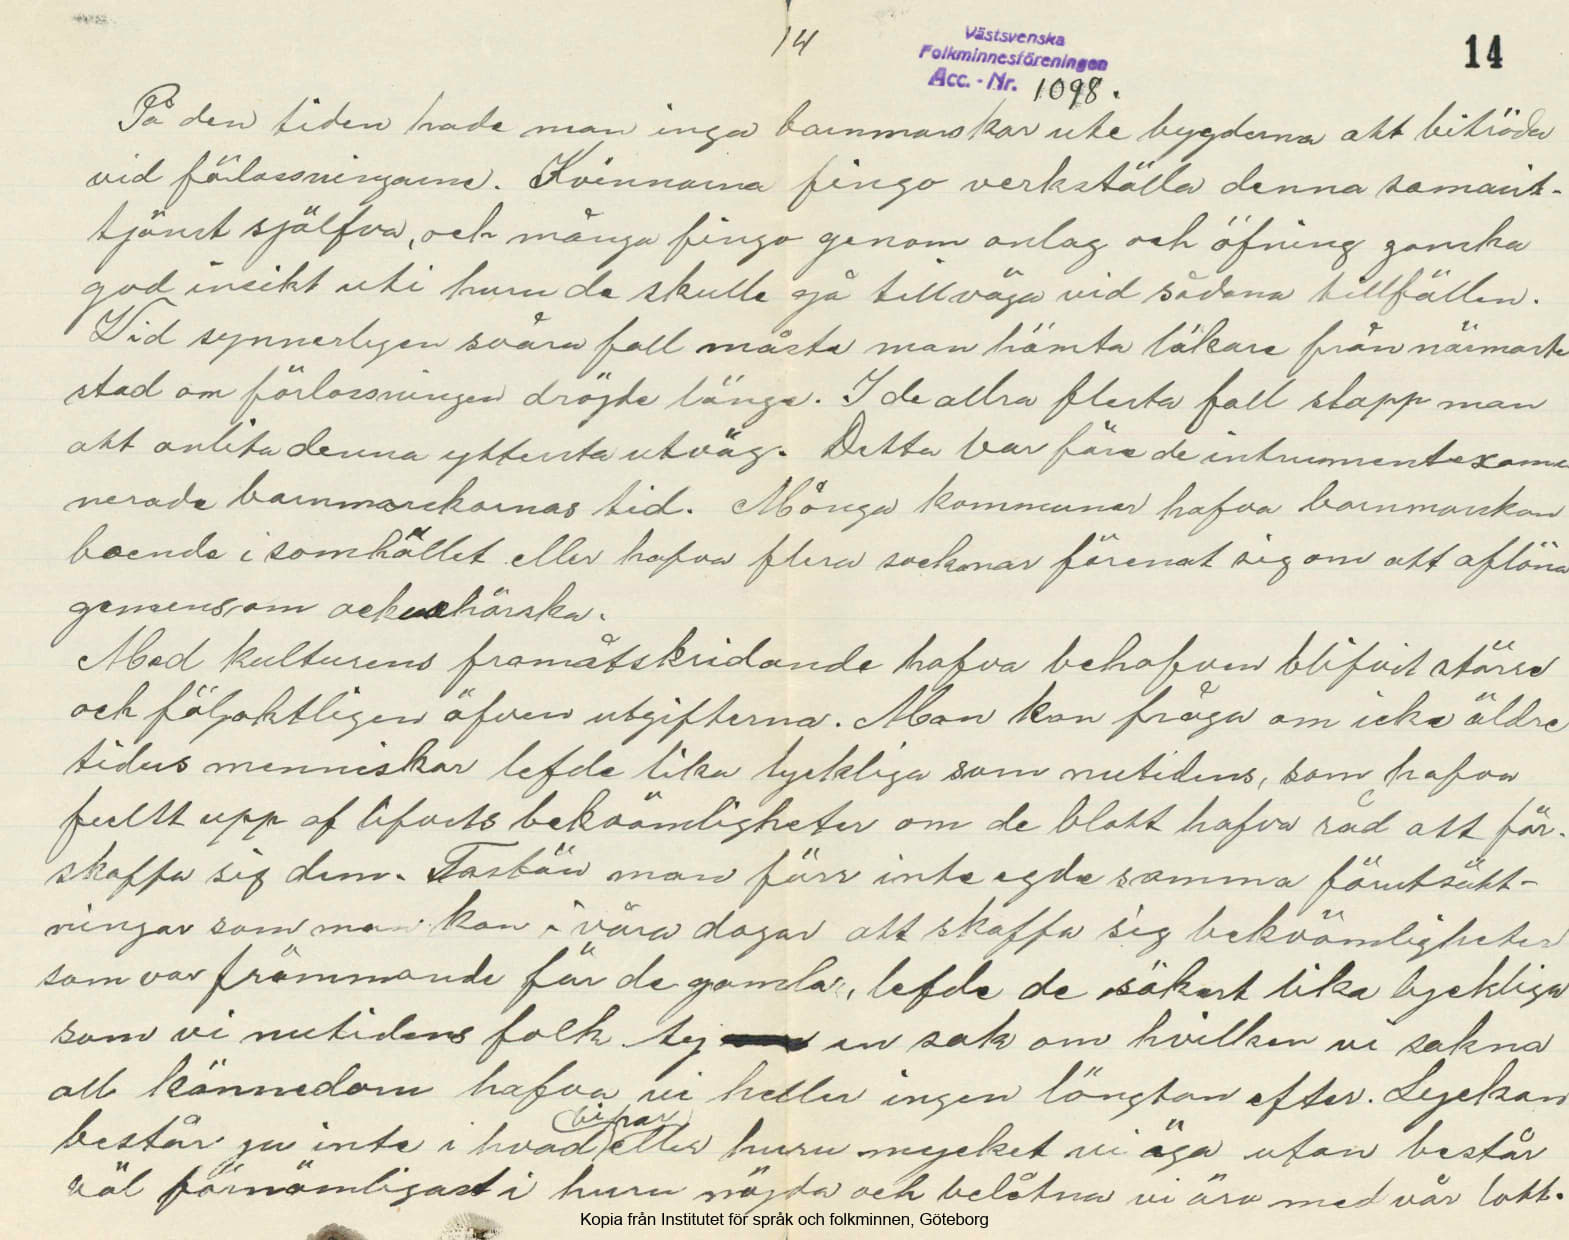 14
Västsvenska
Folkminnesföreningen
Acc. - Nr. 1098.
14
På den tiden hade man inga barnmorskor ute bygderna att biträda
vid förlossningarne. Kvinnorna fingo verkställa denna samarit-
tjänst självfva, och många fingo genom anlag och öfning ganska
god insikt uti huru de skulle gå tillväga vid sådana tillfällen.
Vid synnerligen svåra fall måste man hämta läkare från närmaste
stad om förlossningen dröjde länge. I de allra flesta fall slapp man
att anlita denna yttersta utväg. Detta var före de intrumentexami
nerade barnmorskornas tid. Många kommuner hafva barnmorskan
boende i samhället eller hafva flera socknar förenat sig om att aflöna
gemensam
Med kulturens framåtskridande hafva behofven blifvit större
och följaktligen äfven utgifterna. Man kan fråga om icke äldre
tiders menniskor lefde lika lyckliga som nutidens, som hafva
fullt upp af lifvets bekvämligheter om de blott hafva råd att för-
skaffa sig dem. Fastän man förr inte egde samma förutsätt-
ningar som man kan i våra dagar att skaffa sig bekvämligheter
som var främmande för de gamla, lefde de säkert lika lyckliga
som vi nutidens folk ty en sak om hvilken vi sakna
all kännedom hafva vi heller ingen längtan efter. Lyckan
består ju inte i hvad vi har eller huru mycket vi äga utan består
väl förnämligast i huru nöjda och belåtna vi äro med vår lott.
Kopia från Institutet för språk och folkminnen, Göteborg